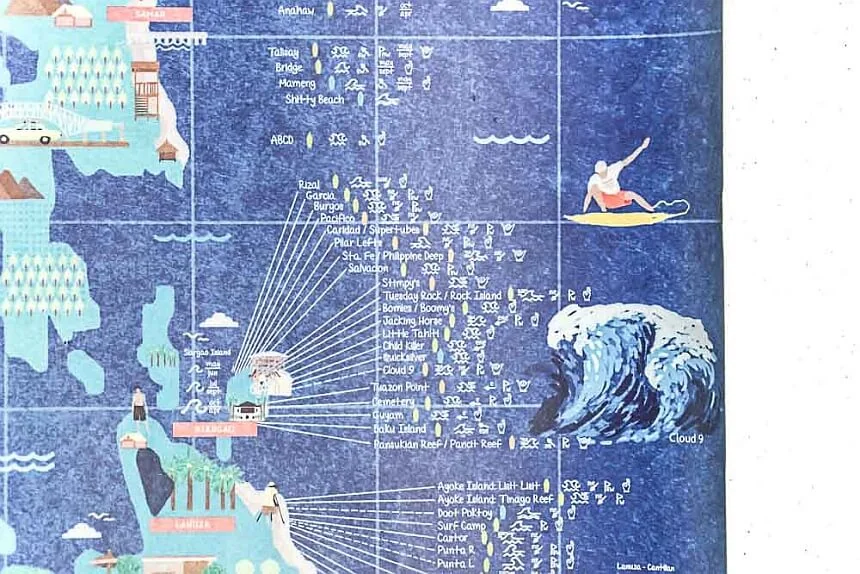 SAMAR
Anahaw
Talisay
Bridge
Mameng
Shitty Beach
ABCD
Rizal
Garcia
Burgos
Pacifico
Caridad / Supertubes
Pilar Lefts
Sta. Fe / Philippine Deep
Salvacion
Stimpy's
Tuesday Rock / Rock Island
Bomies / Boomy's
Jacking Horse
Little Tahiti
Child Killer
Quicksilver
Cloud 9
Siargao Island
Tuazon Point
Cemetery
Guyam
Daku Island
Pansukian Reef / Pancit Reef
SIARGAO
Cloud 9
Ayoke Island: Lisit Lisit
Ayoke Island: Tinago Reef
Doot Poktoy
Surf Camp
Cantor
Punta R
Punta L
LANUZA
Lanuza - Cantilan